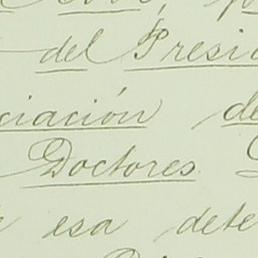 del Presi
ciación de
Doctores
esa dete